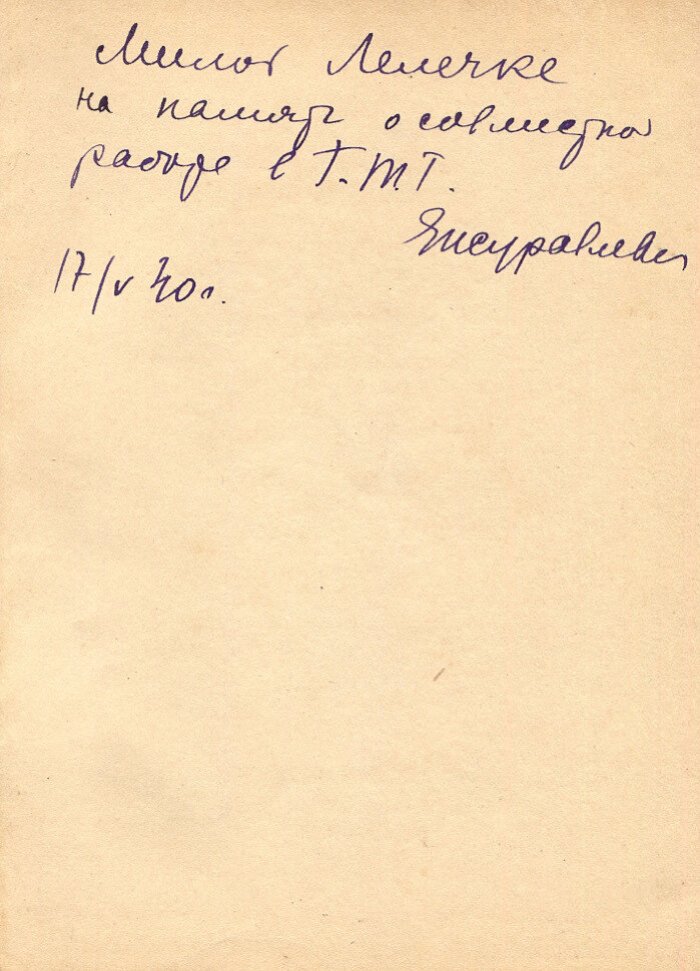 Милой Лелечке
на память о совместной
работе в Т.Ж.Т.
Журавлева
17/V 40 г.